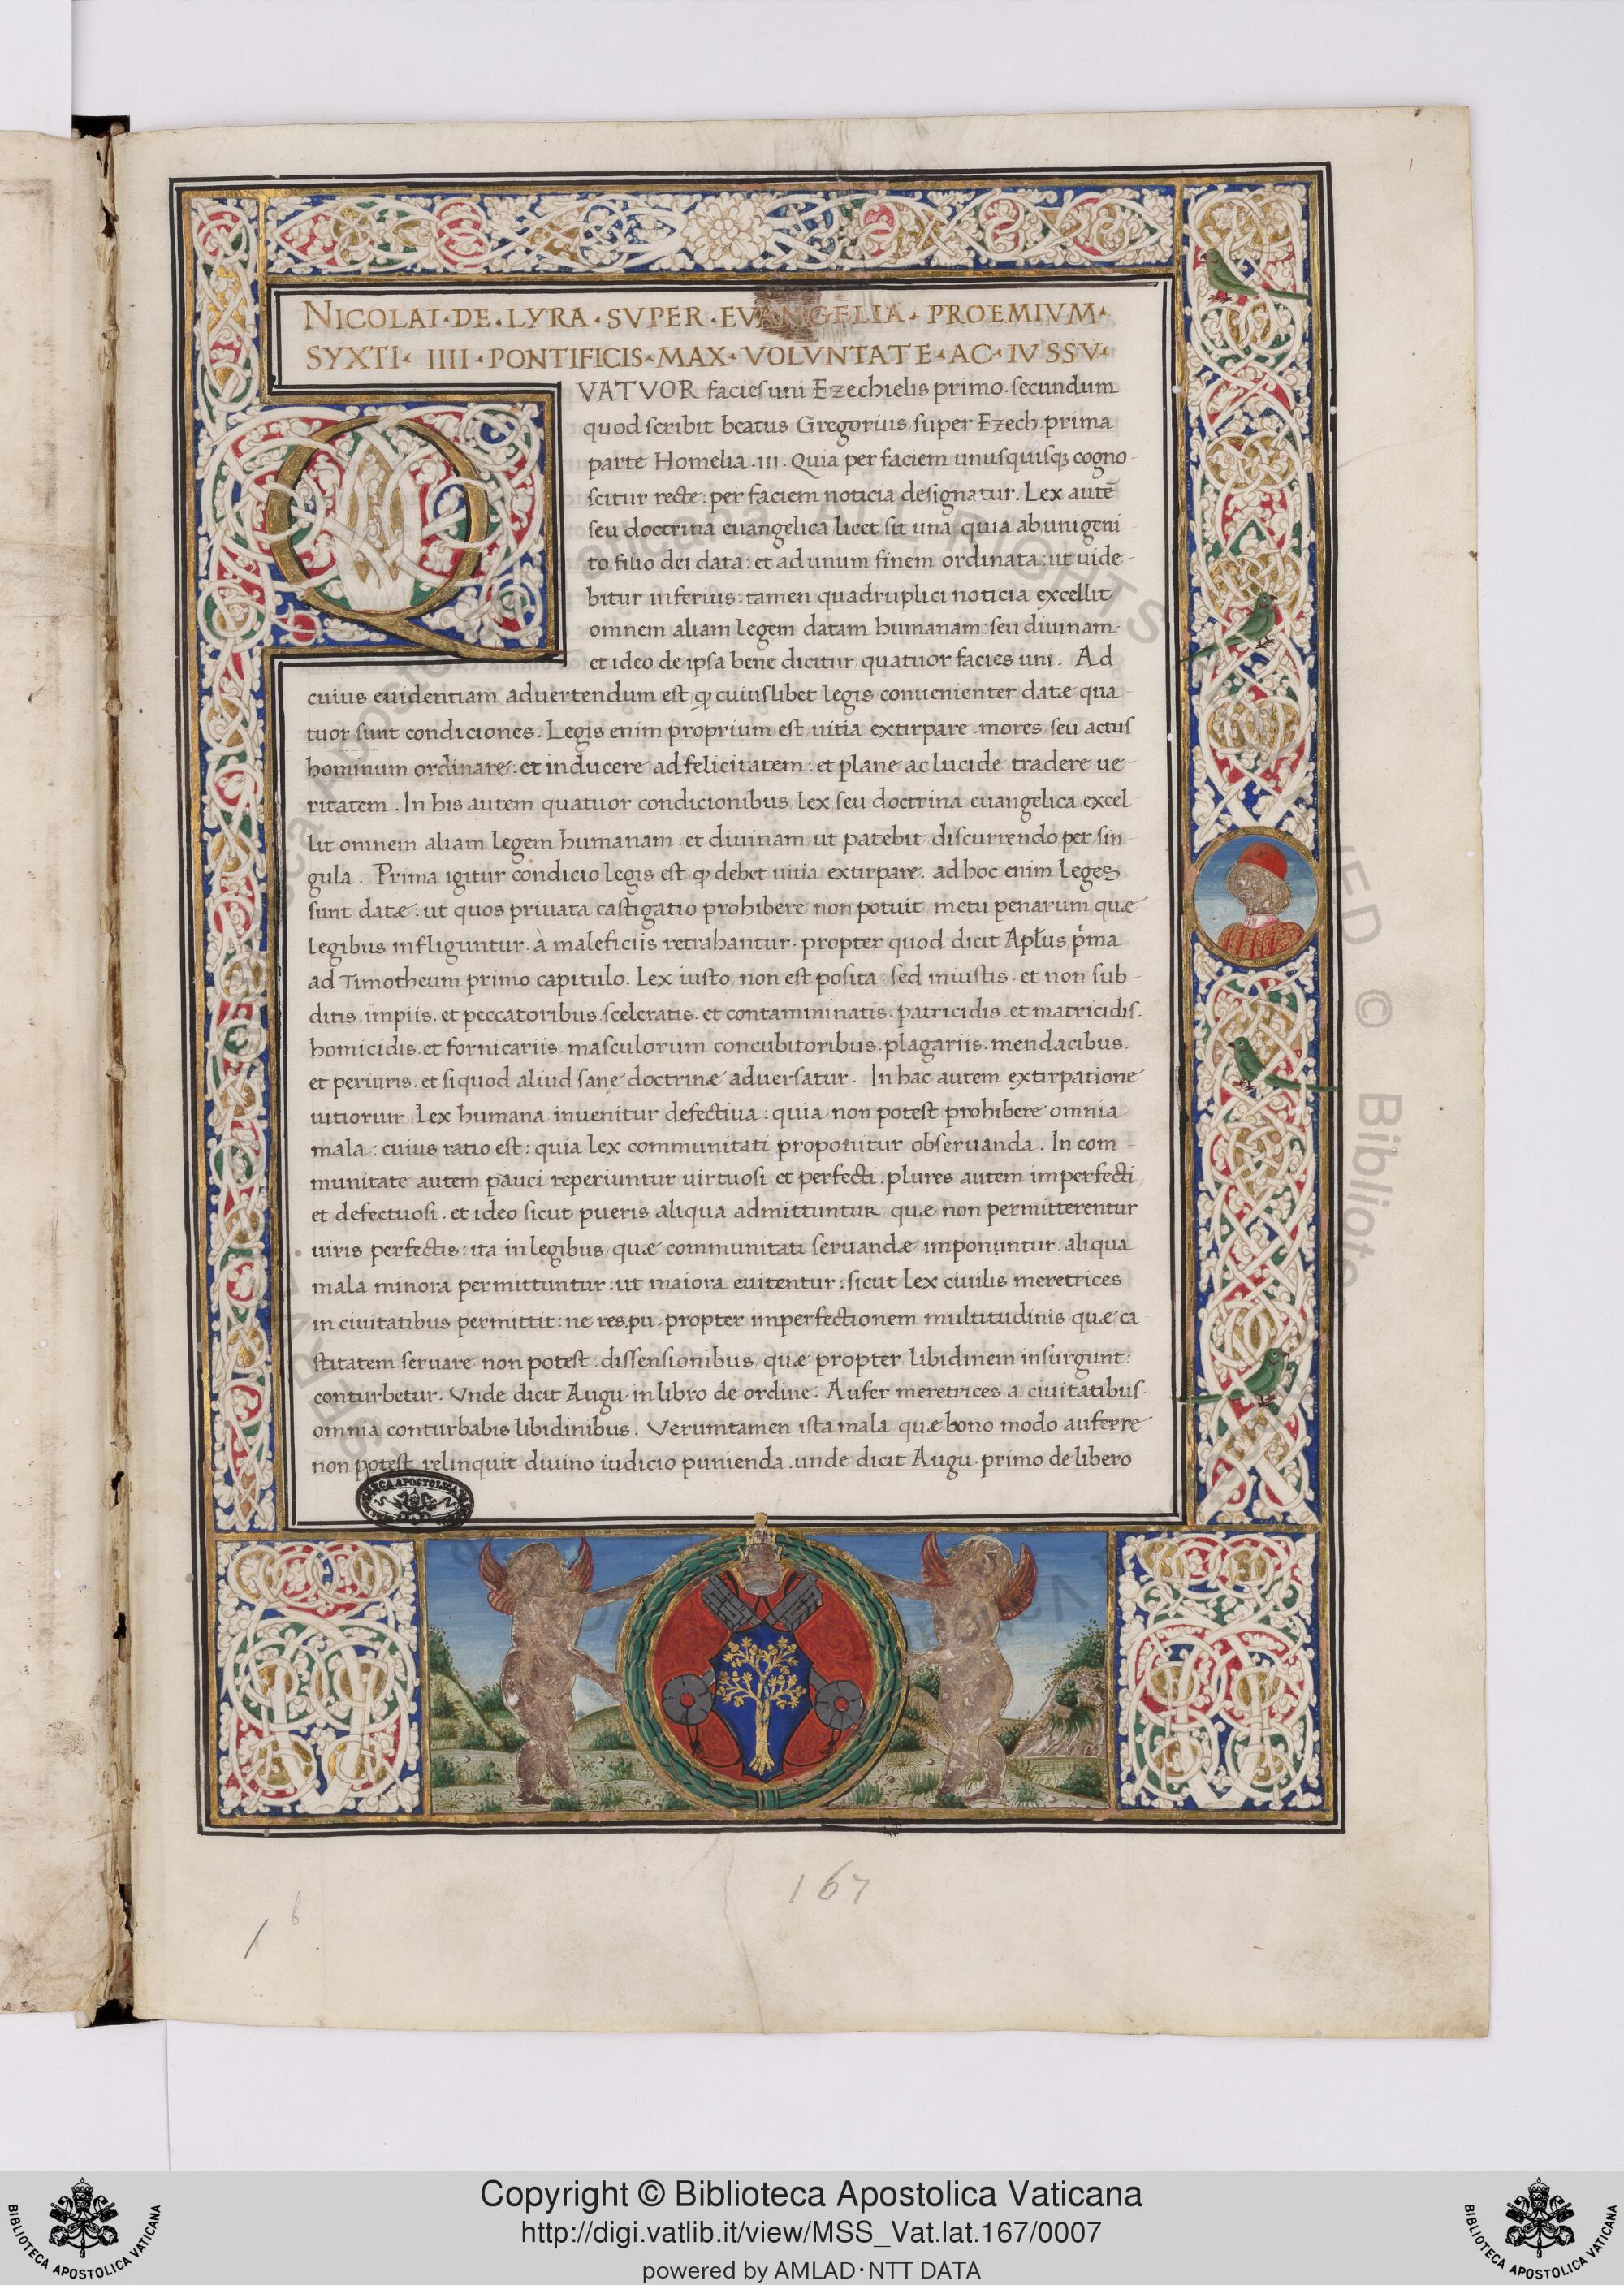 NICOLAI·DE·LYRA·SVPER·EVANGELIA·PROEMIVM·
SYXTI·IIII·PONTIFICIS·MAX·VOLVNTATE·AC·IVSSV·
QVATVOR facies uni Ezechielis primo. secundum
quod scribit beatus Gregorius super Ezech. prima
parte Homelia .III. Quia per faciem unusquisqꝫ cogno-
scitur recte: per faciem noticia designatur. Lex autē
seu doctrina euangelica licet sit una, quia ab unigeni
to filio dei data: et ad unum finem ordinata: ut uide-
bitur inferius: tamen quadruplici noticia excellit
omnem aliam legem datam humanam: seu diuinam.
et ideo de ipsa bene dicitur quatuor facies uni. Ad
cuius euidentiam aduertendum est ꝙ cuiuslibet legis conuenienter datæ qua-
tuor sunt condiciones. Legis enim proprium est uitia extirpare. mores seu actus
hominum ordinare. et inducere ad felicitatem: et plane ac lucide tradere ue-
ritatem. In his autem quatuor condicionibus, lex seu doctrina euangelica excel-
lit omnem aliam legem humanam. et diuinam, ut patebit discurrendo per sin-
gula. Prima igitur condicio legis est ꝙ debet uitia extirpare. ad hoc enim leges
sunt datæ: ut quos priuata castigatio prohibere non potuit, metu penarum, quæ
legibus infliguntur. à maleficiis retrahantur. propter quod dicit Apłus pⁱma
ad Timotheum primo capitulo. Lex iusto, non est posita: sed iniustis. et non sub-
ditis. impiis. et peccatoribus, sceleratis. et contamininatis. patricidis. et matricidis.
homicidis. et fornicariis. masculorum concubitoribus. plagariis. mendacibus.
et periuris. et siquod aliud sane doctrinæ aduersatur. In hac autem extirpatione
uitiorum Lex humana inuenitur defectiua: quia non potest prohibere omnia
mala: cuius ratio est: quia lex communitati proponitur obseruanda. In com-
munitate autem pauci reperiuntur uirtuosi et perfecti. plures autem imperfecti,
et defectuosi. et ideo sicut pueris aliqua admittuntur, quæ non permitterentur
uiris perfectis: ita in legibus, quæ communitati seruandæ imponuntur: aliqua
mala minora permittuntur: ut maiora euitentur: sicut lex ciuilis meretrices
in ciuitatibus permittit: ne res.pu. propter imperfectionem multitudinis quæ ca
stitatem seruare non potest: dissensionibus, quæ propter libidinem insurgunt:
conturbetur. Vnde dicit Augu. in libro de ordine. Aufer meretrices à ciuitatibus.
omnia conturbabis libidinibus. Verumtamen ista mala quæ bono modo auferre
non potest relinquit diuino iudicio punienda. unde dicit Augu. primo de libero
167
1
Copyright © Biblioteca Apostolica Vaticana
http://digi.vatlib.it/view/MSS_Vat.lat.167/0007
powered by AMLAD·NTT DATA
BIBLIOTECA APOSTOLICA VATICANA
BIBLIOTECA APOSTOLICA VATICANA